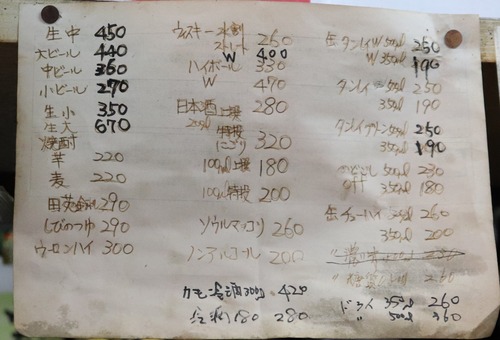 生中 450
大ビール 440
中ビール 360
小ビール 270
生小 350
生大 670
焼酎
芋 220
麦 220
田苑金ラベル 290
しびのつゆ 290
ウーロンハイ 300
ウィスキー 水割 260
ストレート
W 400
ハイボール 330
W 470
日本酒 上撰 280
200ml
特撰
にごり 320
100ml上撰 180
100ml特撰 200
ソウルマッコリ 260
ノンアルコール 200
300ml 420
180 280
缶 タンレイW 500ml 250
W 350ml 190
タンレイ 500ml 250
350ml 190
タンレイグリーン500ml 250
350ml 190
のどごし 500ml 230
350ml 180
缶チューハイ 260
350ml 200
糖質
ドライ 350ml 260
〃 500ml 360